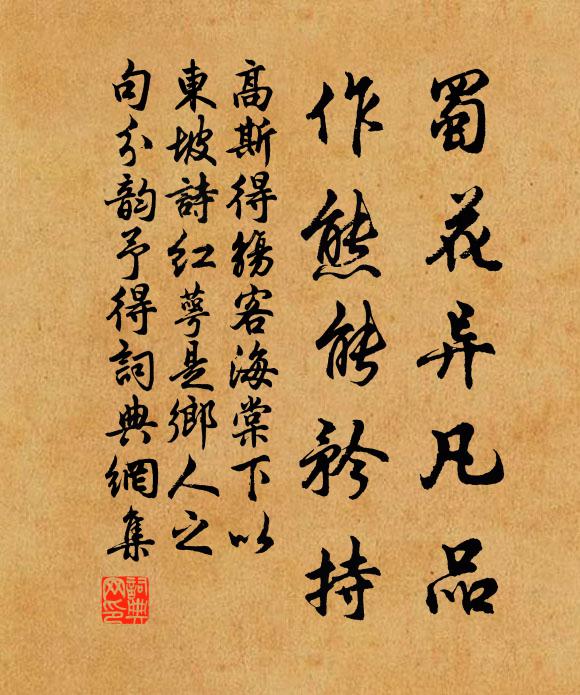 蜀花异凡品
作熊能矜持
高斯得觞客海棠下以
東坡詩紅萼是鄉人之
句分韵予得詞典網集
詞典
网印